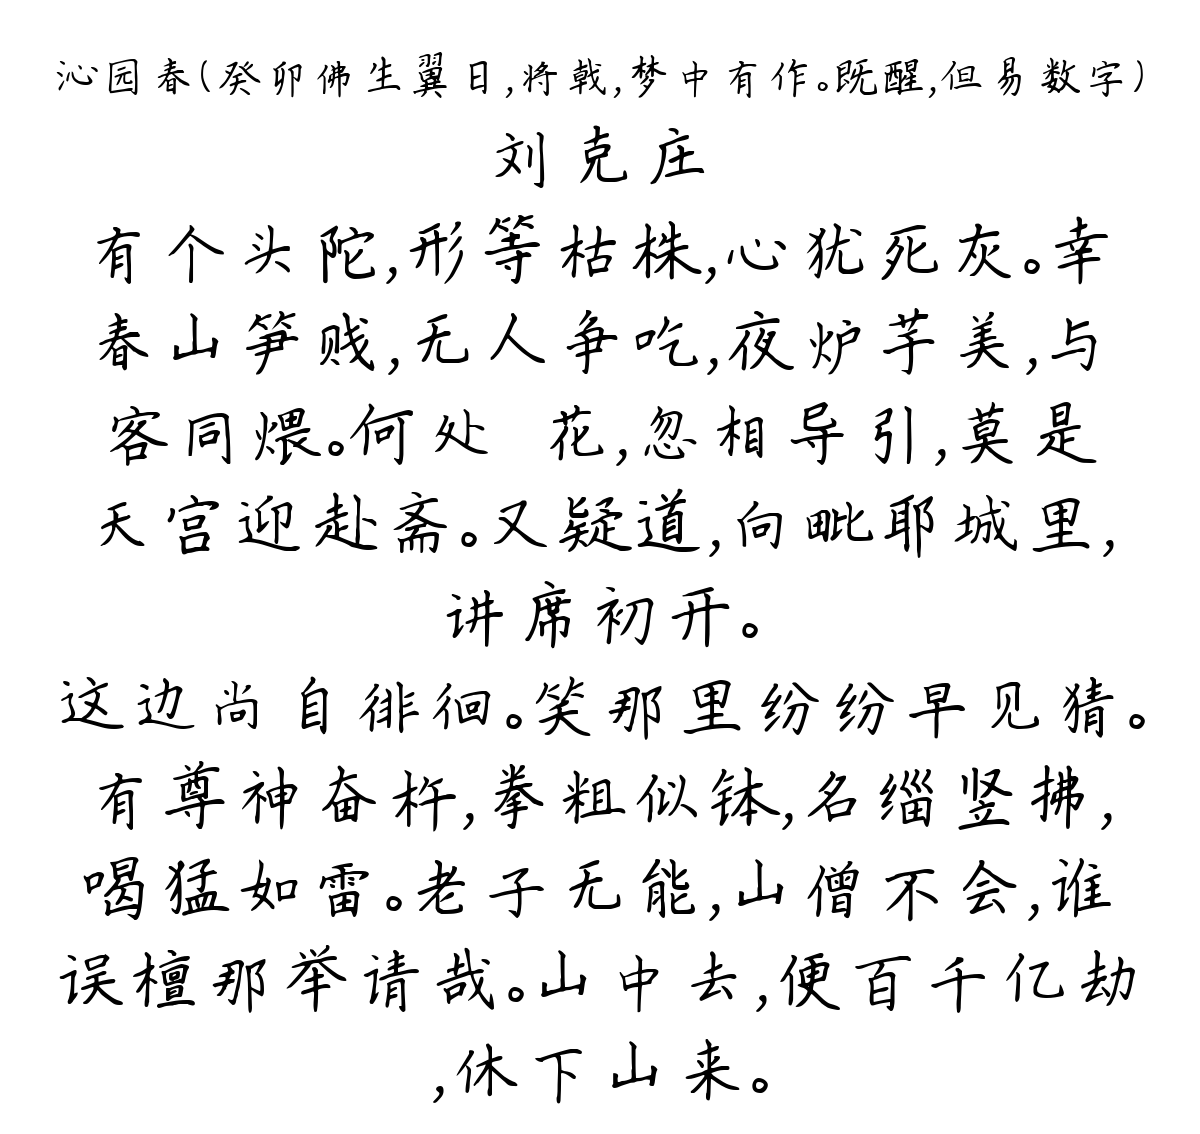 沁园春(癸卯佛生翼日,将戟,梦中有作。既醒,但易数字)
刘克庄
有个头陀,形等枯株,心犹死灰。幸
春山笋贱,无人争吃,夜炉芋美,与
客同煨。何处 花,忽相导引,莫是
天宫迎赴斋。又疑道,向毗耶城里,
讲席初开。
这边尚自徘徊。笑那里纷纷早见猜。
有尊神奋杵,拳粗似钵,名缁竖拂,
喝猛如雷。老子无能,山僧不会,谁
误檀那举请哉。山中去,便百千亿劫
,休下山来。